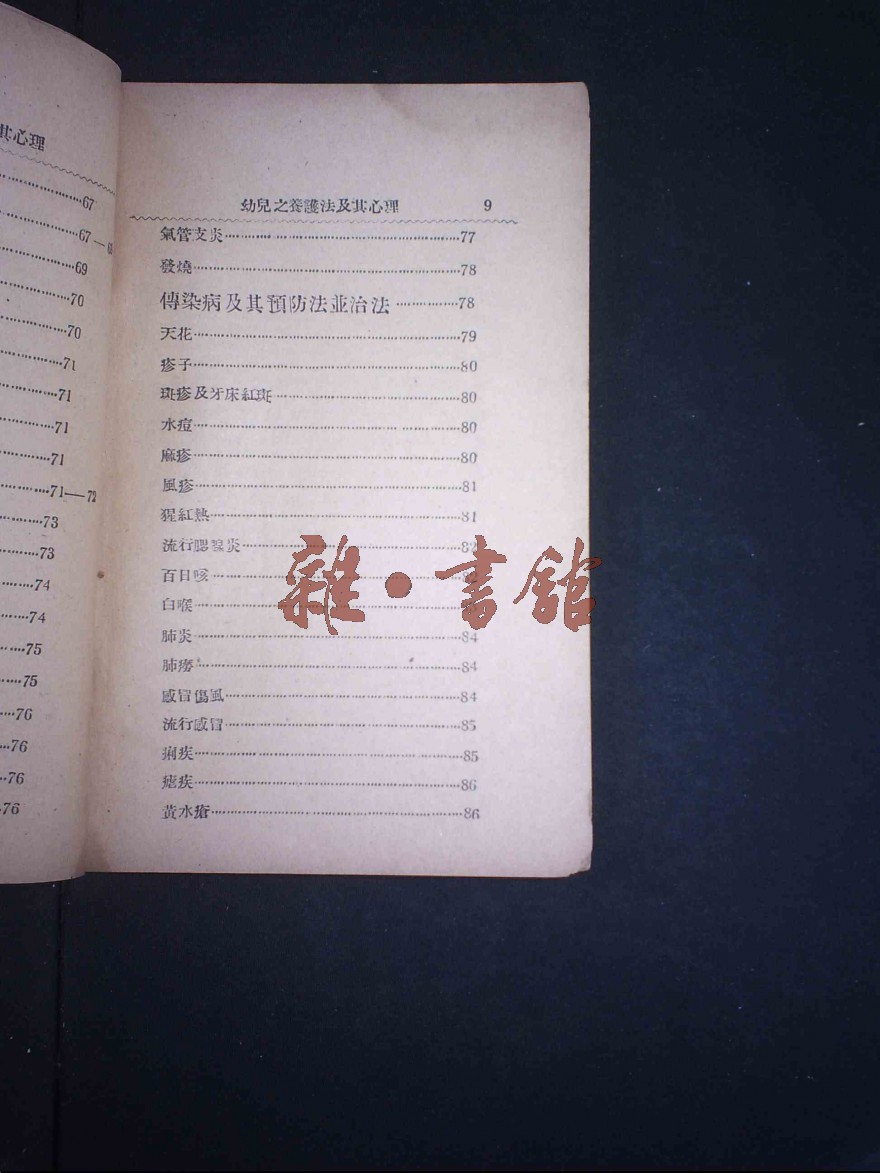 其心理
67
67—6
69
70
70
71
71
71
71
71—72
73
73
74
74
75
75
76
76
76
76
幼兒之養護法及其心理 9
氣管支炎……77
發燒……78
傳染病及其預防法並治法……78
天花……79
疹子……80
斑疹及牙床紅斑……80
水痘……80
麻疹……80
風疹……81
猩紅熱……81
流行腮腺炎……82
百日咳……
白喉……
肺炎……84
肺癆……84
感冒傷風……84
流行感冒……85
痢疾……85
瘧疾……86
黃水瘡……86
雜·書館